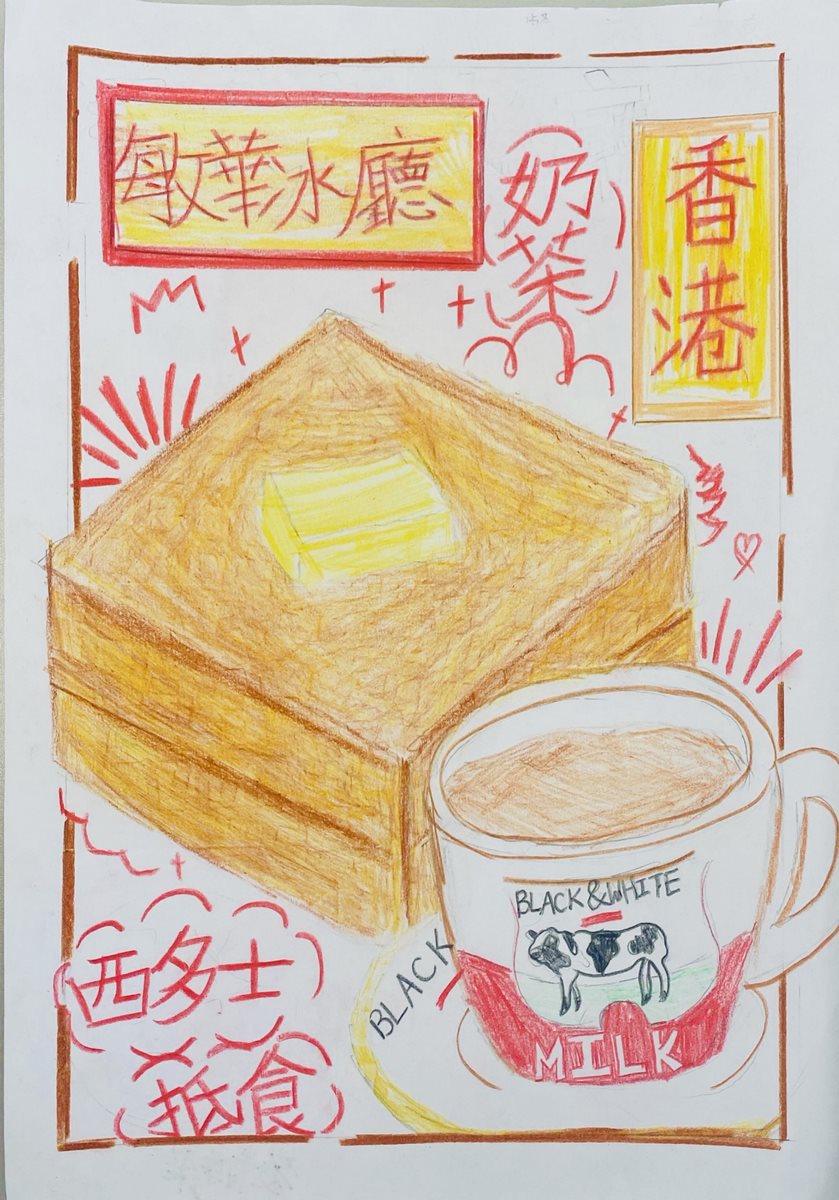 敏華冰廳
奶茶
香港
BLACK&WHITE
BLACK
MILK
西多士
抵食